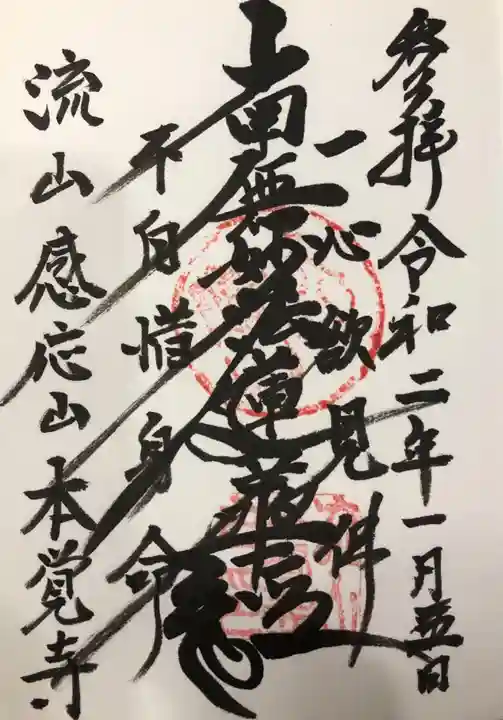 参拝 令和二年一月五日
一心欲見佛
南無妙法蓮華経
不自惜身命
流山 感応山 本覚寺